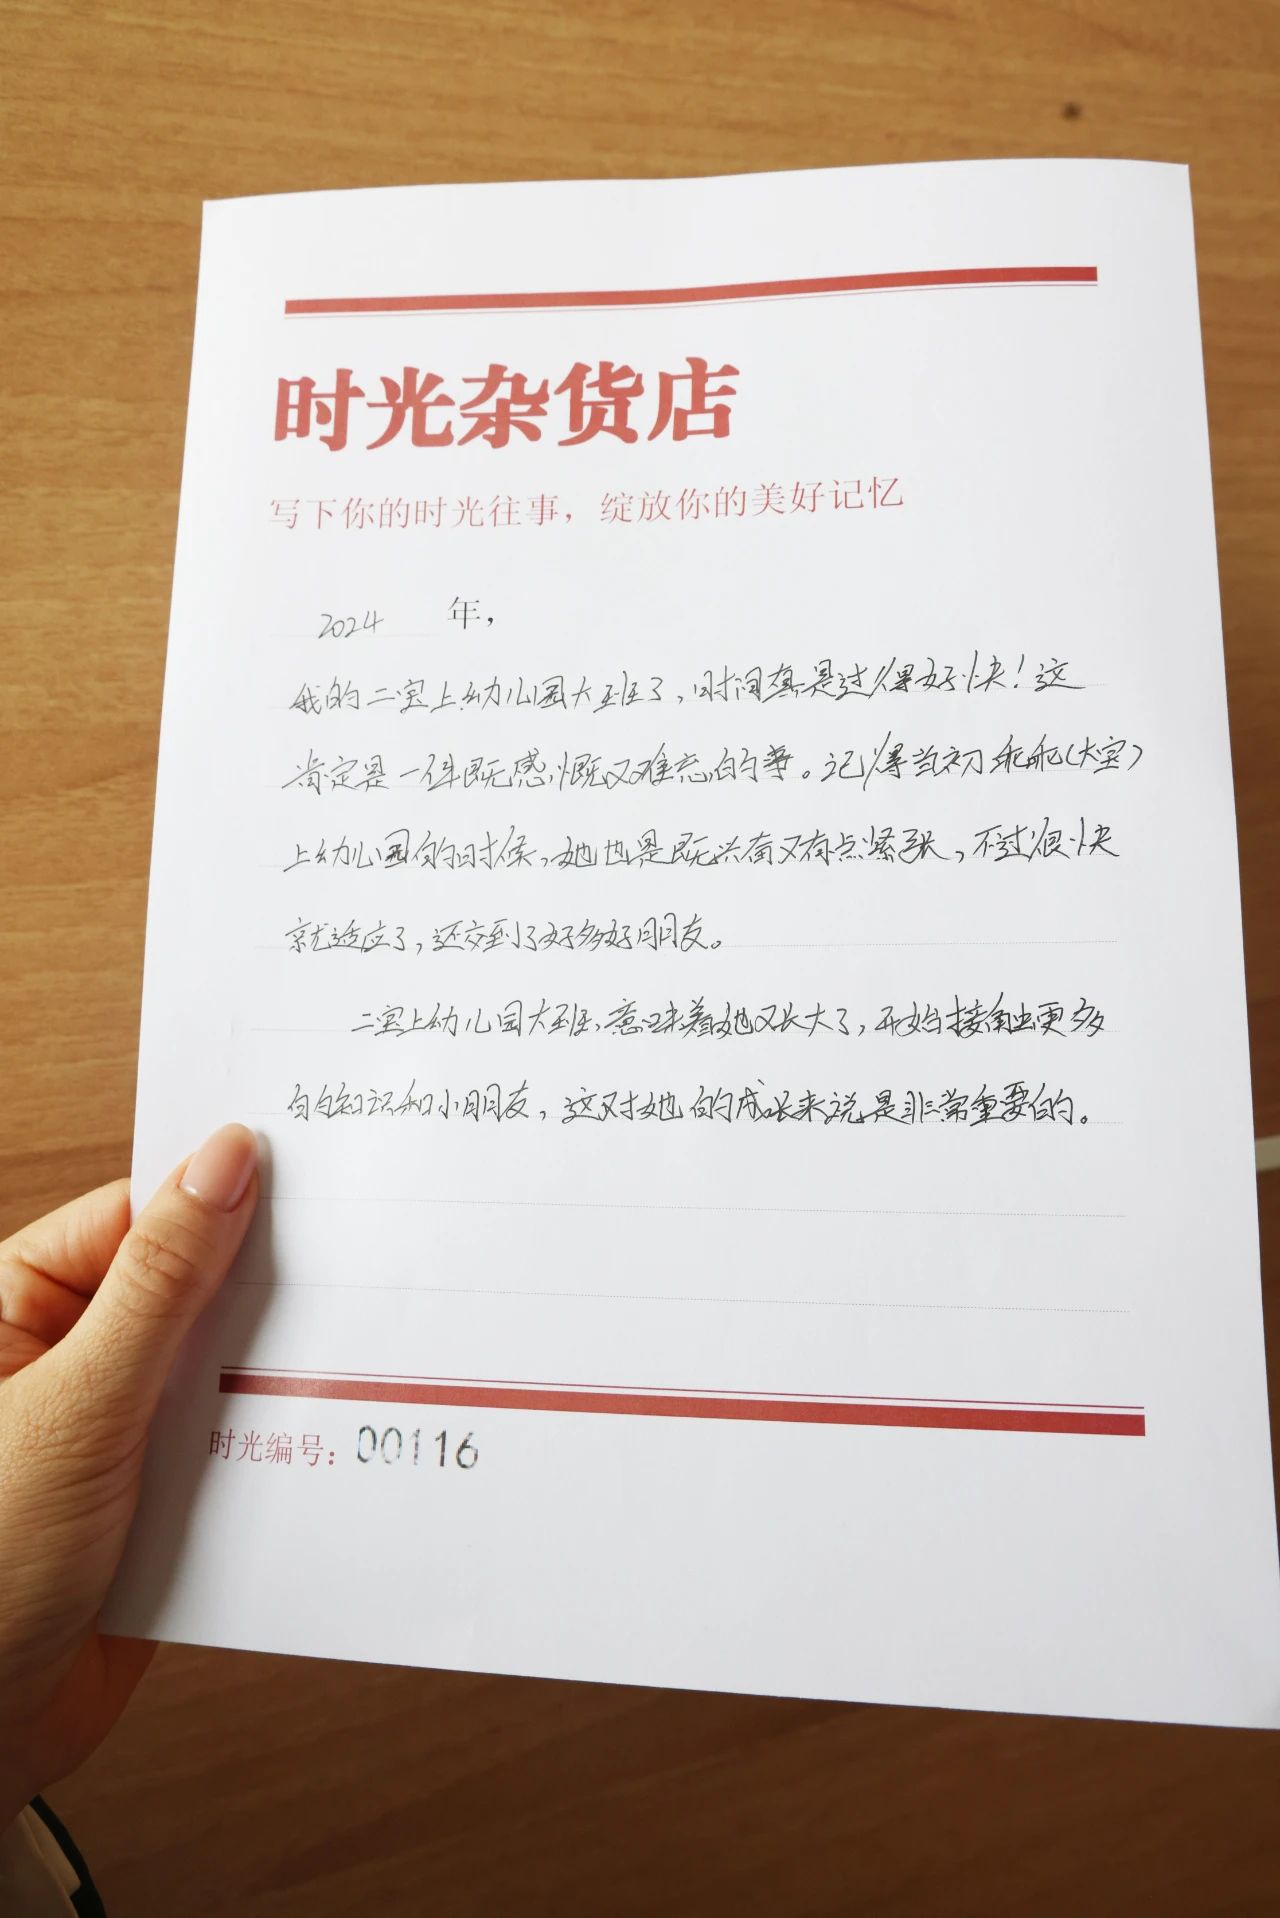 时光杂货店
写下你的时光往事，绽放你的美好记忆
2024 年，
我的二宝上幼儿园大班了，时间真是过得好快！这
肯定是一件既感慨又难忘的事。记得当初乖乖（大宝）
上幼儿园的时候，她也是既兴奋又有点紧张，不过很快
就适应了，还交到了好多好朋友。
二宝上幼儿园大班，意味着她又长大了，开始接触更多
的知识和小朋友，这对她的成长来说是非常重要的。
时光编号：00116